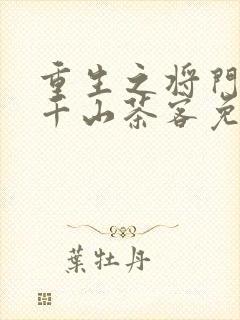 重生之将門
千山茶客免
葉牡丹